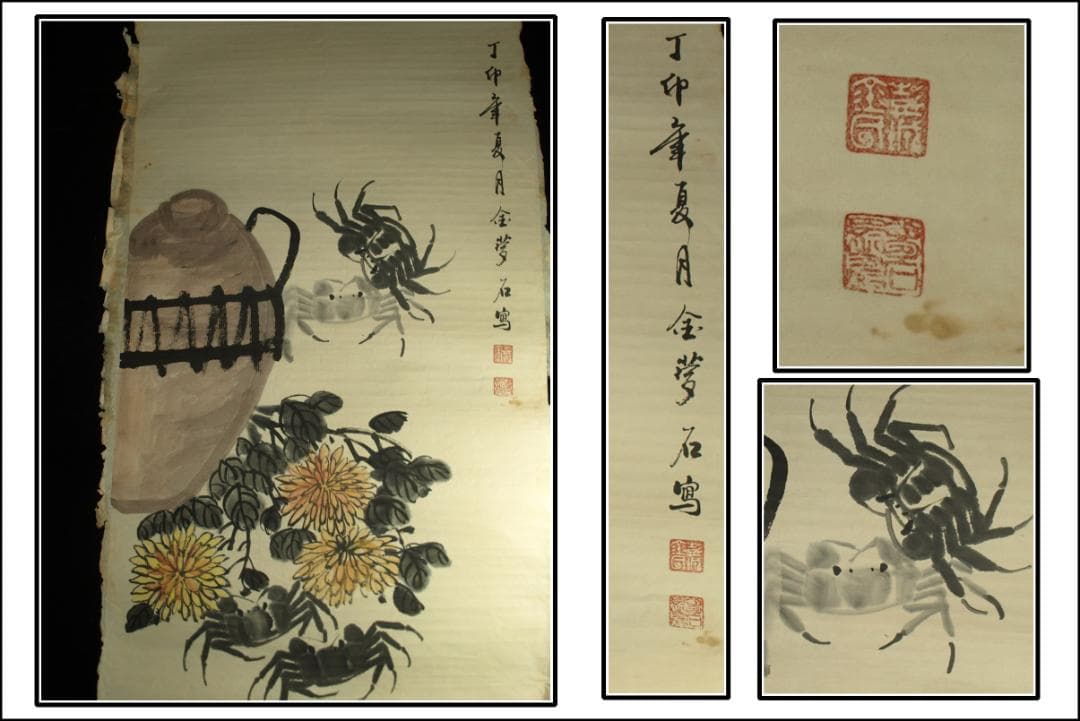 丁卯年夏月金夢石寫
丁卯年夏月金夢石寫